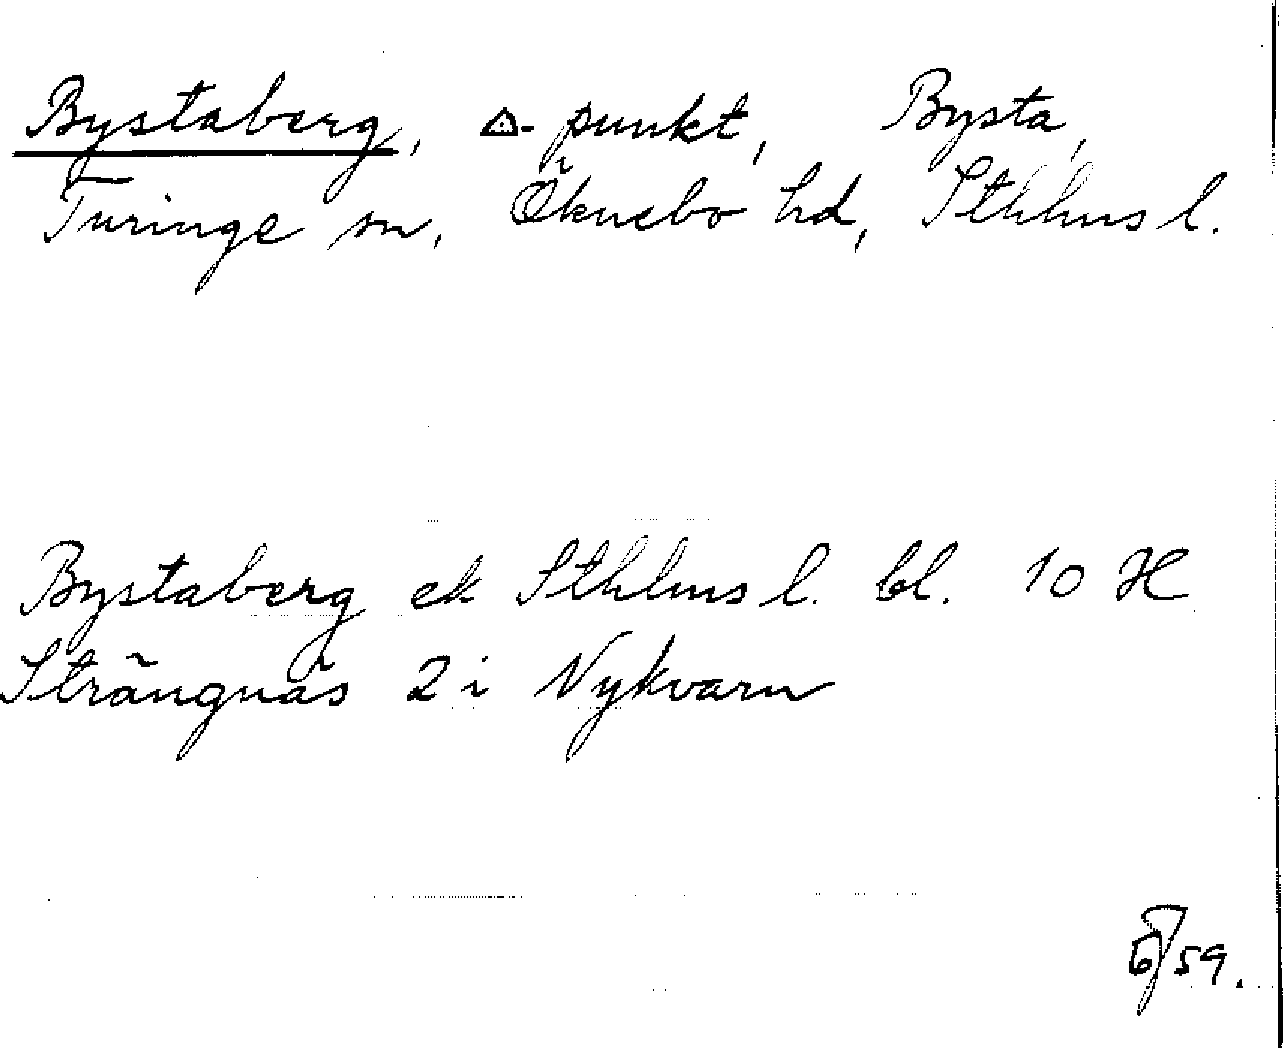 Bystaberg, △-punkt, Bysta,
Turinge sn, Öknebo hd, Sthlms l.
Bystaberg ek Sthlms l. bl. 10 H
Strängnäs 2 i Nykvarn
/59.